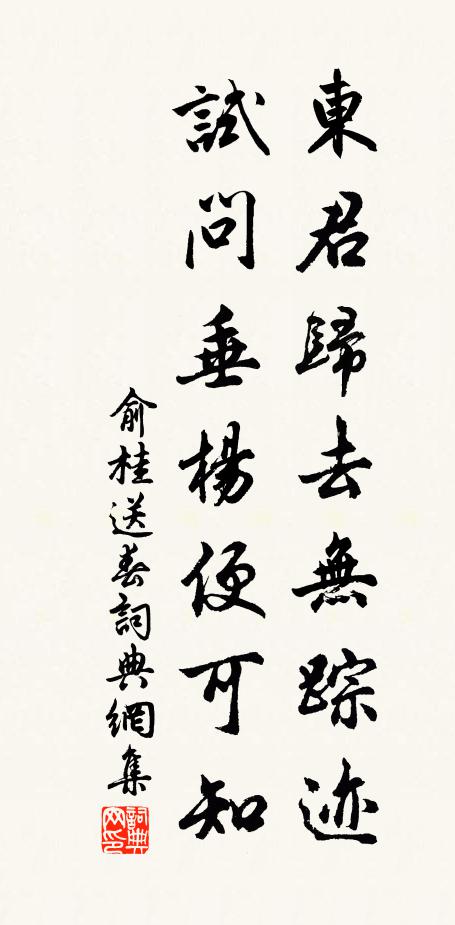 東君歸去無踪迹
試問垂楊便可知
俞桂送春詞典網集
詞典网印